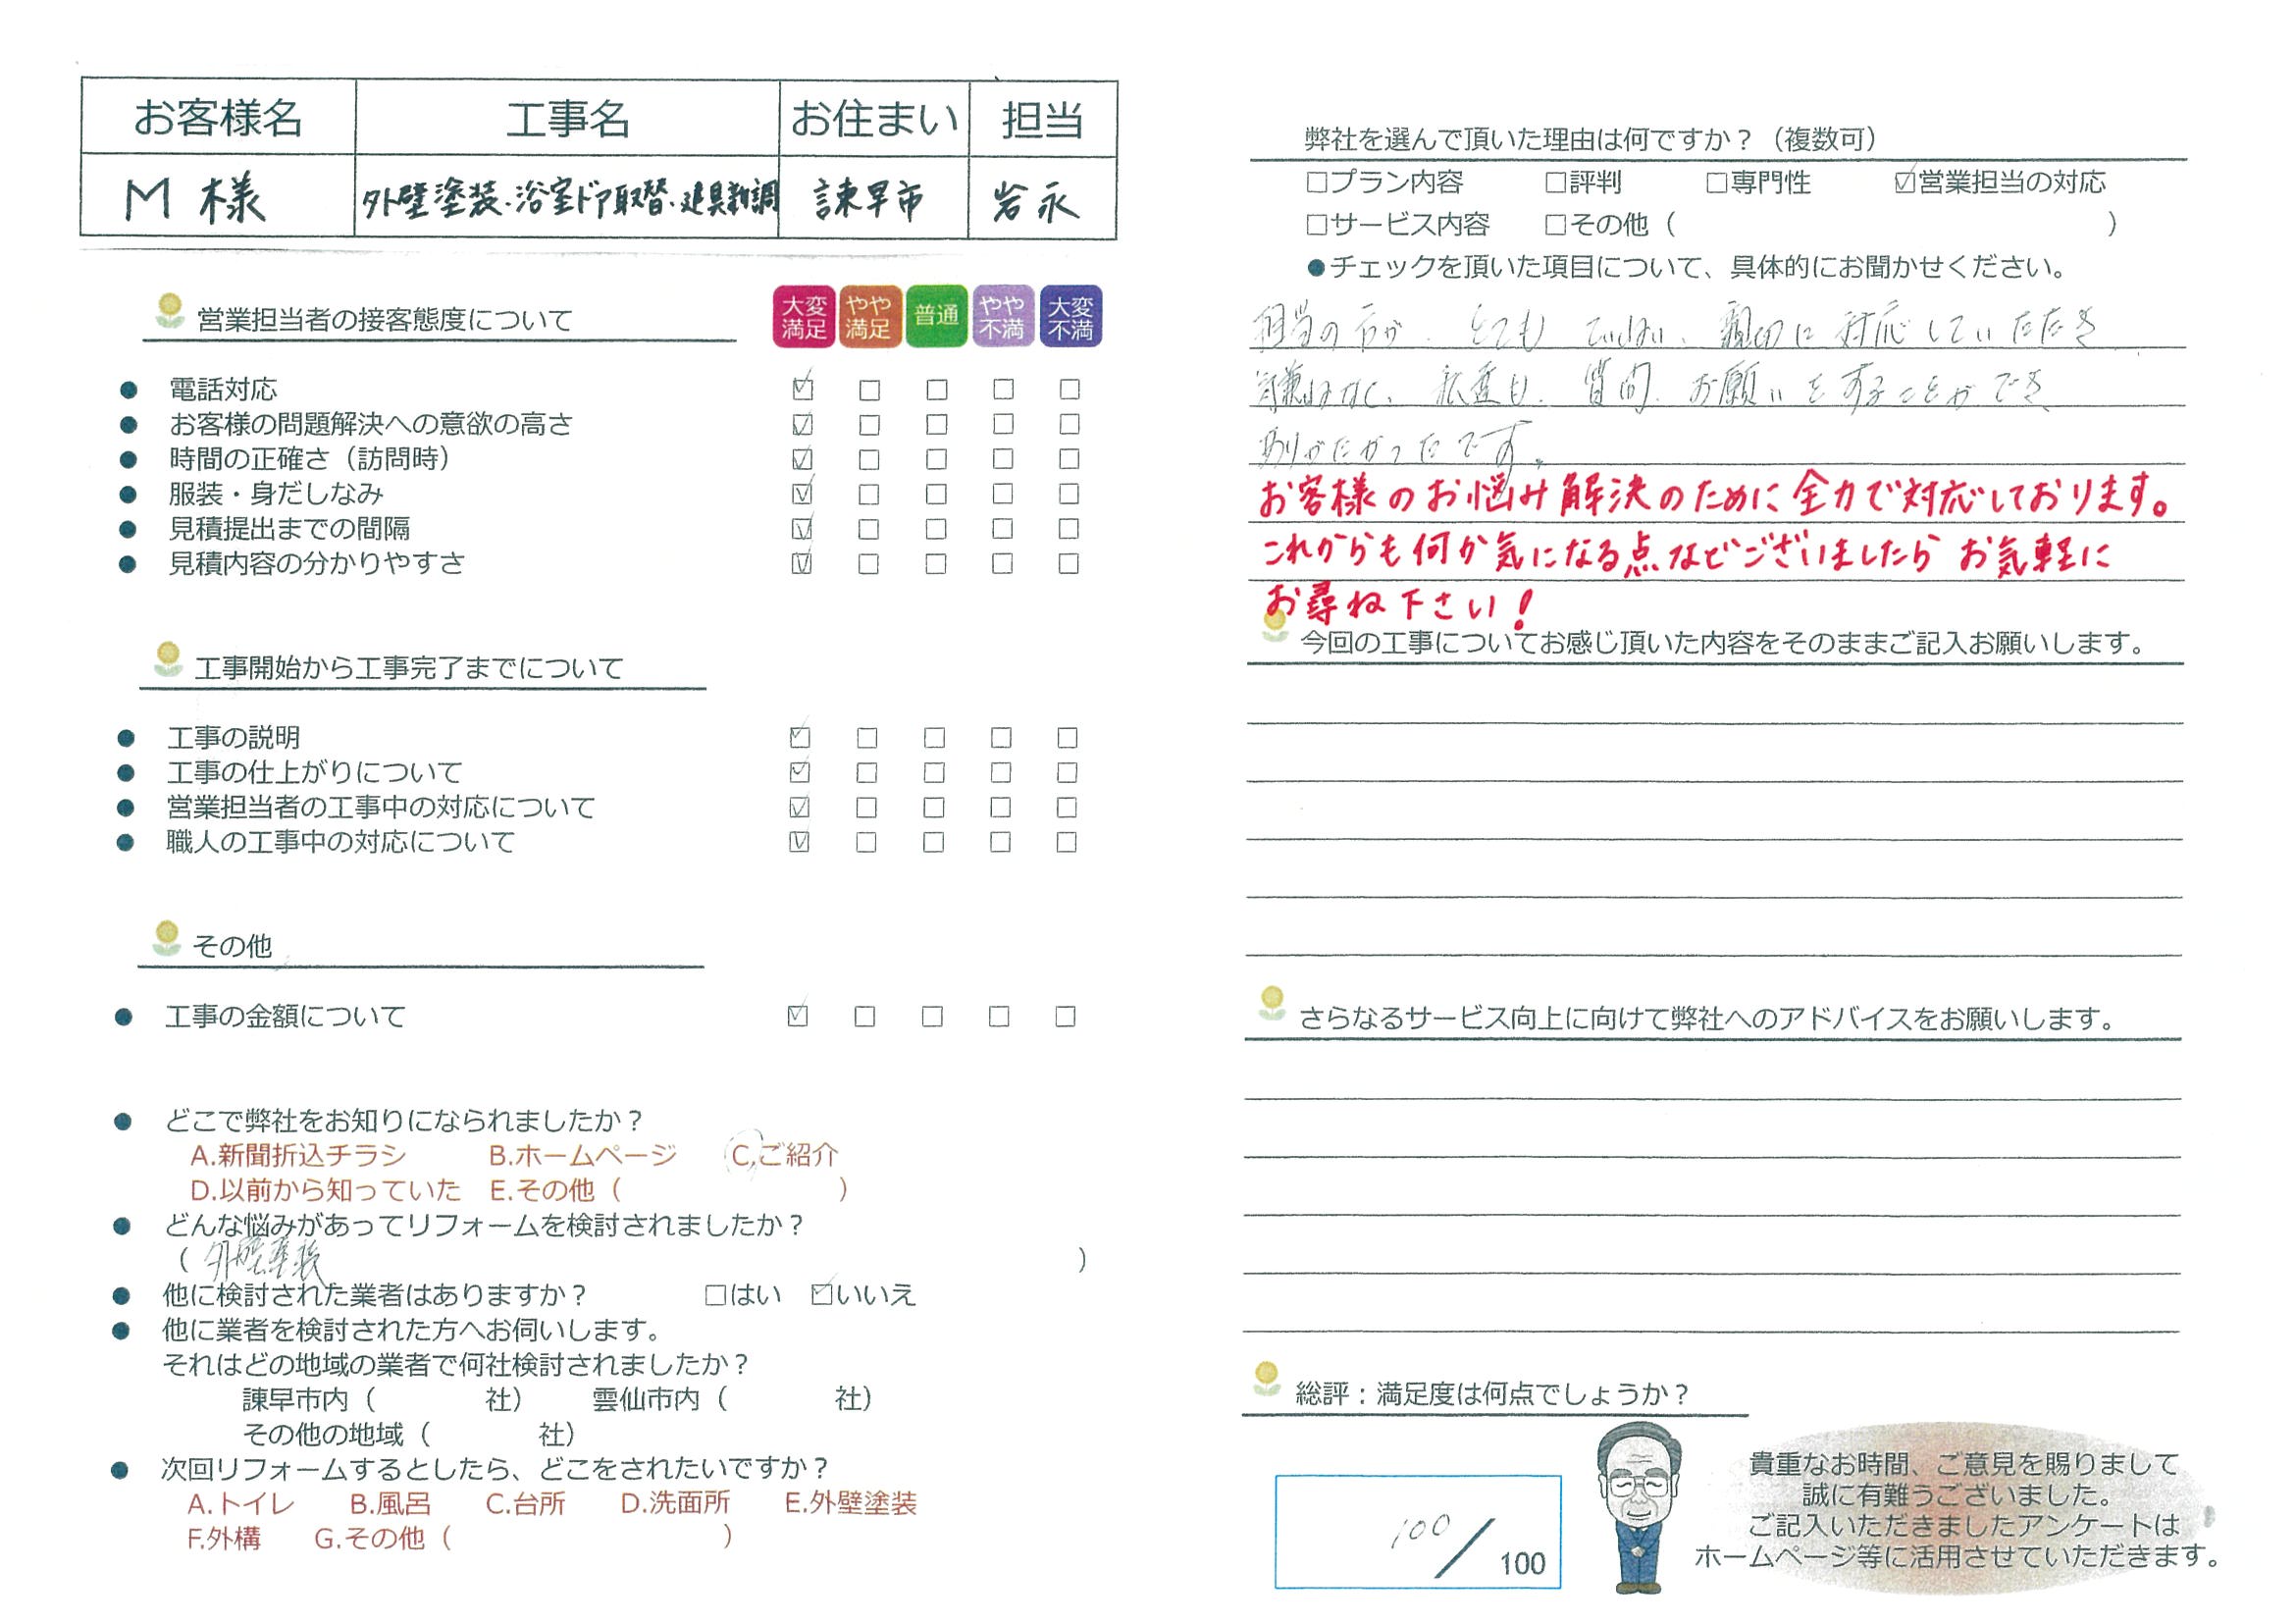 お客様名 工事名 お住まい 担当
M 様 外壁塗装・浴室ドア取替・建具調 諫早市 岩永
営業担当者の接客態度について 大変満足 やや満足 普通 やや不満 大変不満
● 電話対応 ☑ □ □ □ □
● お客様の問題解決への意欲の高さ ☑ □ □ □ □
● 時間の正確さ（訪問時） ☑ □ □ □ □
● 服装・身だしなみ ☑ □ □ □ □
● 見積提出までの間隔 ☑ □ □ □ □
● 見積内容の分かりやすさ ☑ □ □ □ □
工事開始から工事完了までについて
● 工事の説明 ☑ □ □ □ □
● 工事の仕上がりについて ☑ □ □ □ □
● 営業担当者の工事中の対応について ☑ □ □ □ □
● 職人の工事中の対応について ☑ □ □ □ □
その他
● 工事の金額について ☑ □ □ □ □
● どこで弊社をお知りになられましたか？
A.新聞折込チラシ B.ホームページ C.ご紹介
D.以前から知っていた E.その他（ ）
● どんな悩みがあってリフォームを検討されましたか？
（ 外壁塗装 ）
● 他に検討された業者はありますか？ □はい ☑いいえ
● 他に業者を検討された方へお伺いします。
それはどの地域の業者で何社検討されましたか？
諫早市内（ 社） 雲仙市内（ 社）
その他の地域（ 社）
● 次回リフォームするとしたら、どこをされたいですか？
A.トイレ B.風呂 C.台所 D.洗面所 E.外壁塗装
F.外構 G.その他（ ）
弊社を選んで頂いた理由は何ですか？（複数可）
□プラン内容 □評判 □専門性 ☑営業担当の対応
□サービス内容 □その他（ ）
●チェックを頂いた項目について、具体的にお聞かせください。
担当の方が、とても ていねい、親切に対応していただき
質問、お願いをすることができ
ありがたかったです。
お客様のお悩み解決のために全力で対応しております。
これからも何か気になる点などございましたらお気軽に
お尋ね下さい！
今回の工事についてお感じ頂いた内容をそのままご記入お願いします。
さらなるサービス向上に向けて弊社へのアドバイスをお願いします。
総評：満足度は何点でしょうか？
100／100
貴重なお時間、ご意見を賜りまして
誠に有難うございました。
ご記入いただきましたアンケートは
ホームページ等に活用させていただきます。